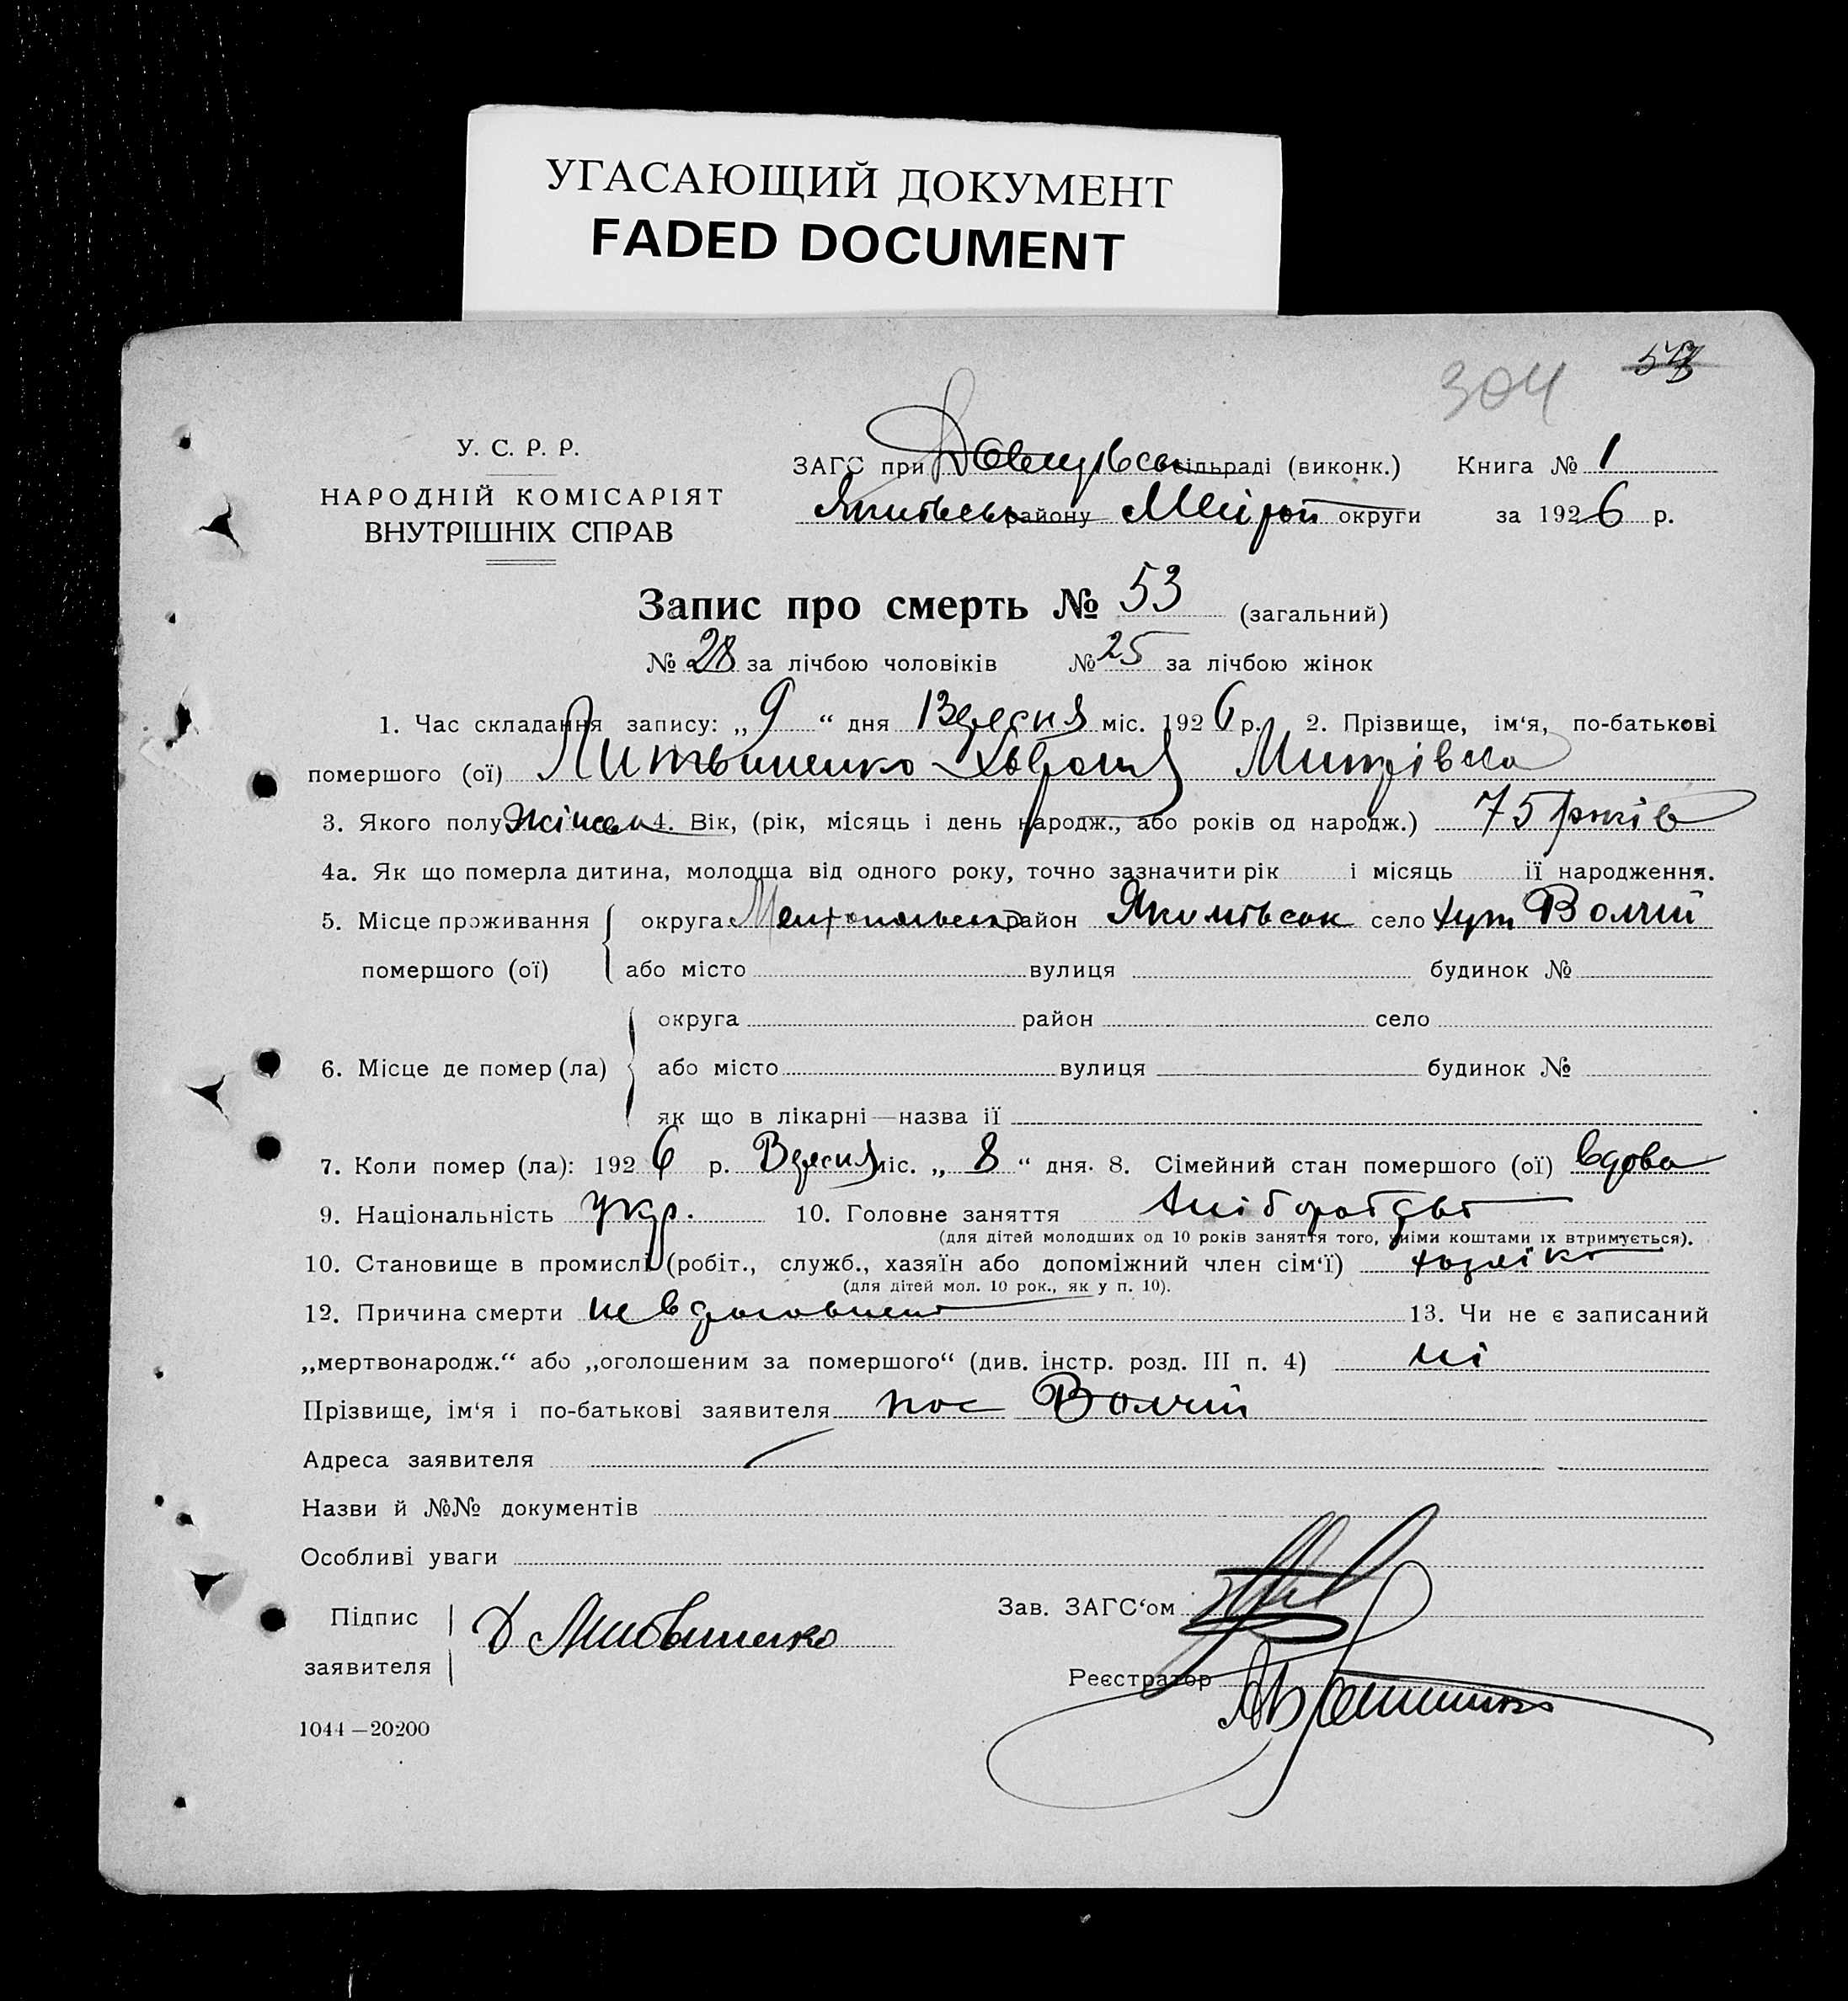 УГАСАЮЩИЙ ДОКУМЕНТ
FADED DOCUMENT
304
У. С. Р. Р.
НАРОДНІЙ КОМІСАРІЯТ
ВНУТРІШНІХ СПРАВ
ЗАГС при сільраді (виконк.) Книга № 1
району округи за 1926 р.
Запис про смерть № 53 (загальний)
№ 28 за лічбою чоловіків № 25 за лічбою жінок
1. Час складання запису: „ 9 “ дня Вересня міс. 1926 р. 2. Прізвище, ім‘я, по-батькові
помершого (ої) Литвиненко Митрівна
3. Якого полу 4. Вік, (рік, місяць і день народж., або років од народж.) 75 років
4а. Як що померла дитина, молодща від одного року, точно зазначити рік і місяць її народження.
5. Місце проживання округа район село хут Волчий
помершого (ої) або місто вулиця будинок №
округа район село
6. Місце де помер (ла) або місто вулиця будинок №
як що в лікарні — назва ії
7. Коли помер (ла): 1926 р. Вересня міс. „ 8 “ дня. 8. Сімейний стан помершого (ої) вдова
9. Національність укр. 10. Головне заняття
(для дітей молодших од 10 років заняття того, чиїми коштами їх втримується).
10. Становище в промислі (робіт., служб., хазяїн або допоміжний член сім‘ї)
(для дітей мол. 10 рок., як у п. 10).
12. Причина смерти 13. Чи не є записаний
„мертвонародж.“ або „оголошеним за помершого“ (див. інстр. розд. III п. 4) ні
Прізвище, ім‘я і по-батькові заявителя пос Волчий
Адреса заявителя
Назви й №№ документів
Особливі уваги
Підпис
заявителя Литвиненко
Зав. ЗАГС‘ом
Реєстратор
1044—20200